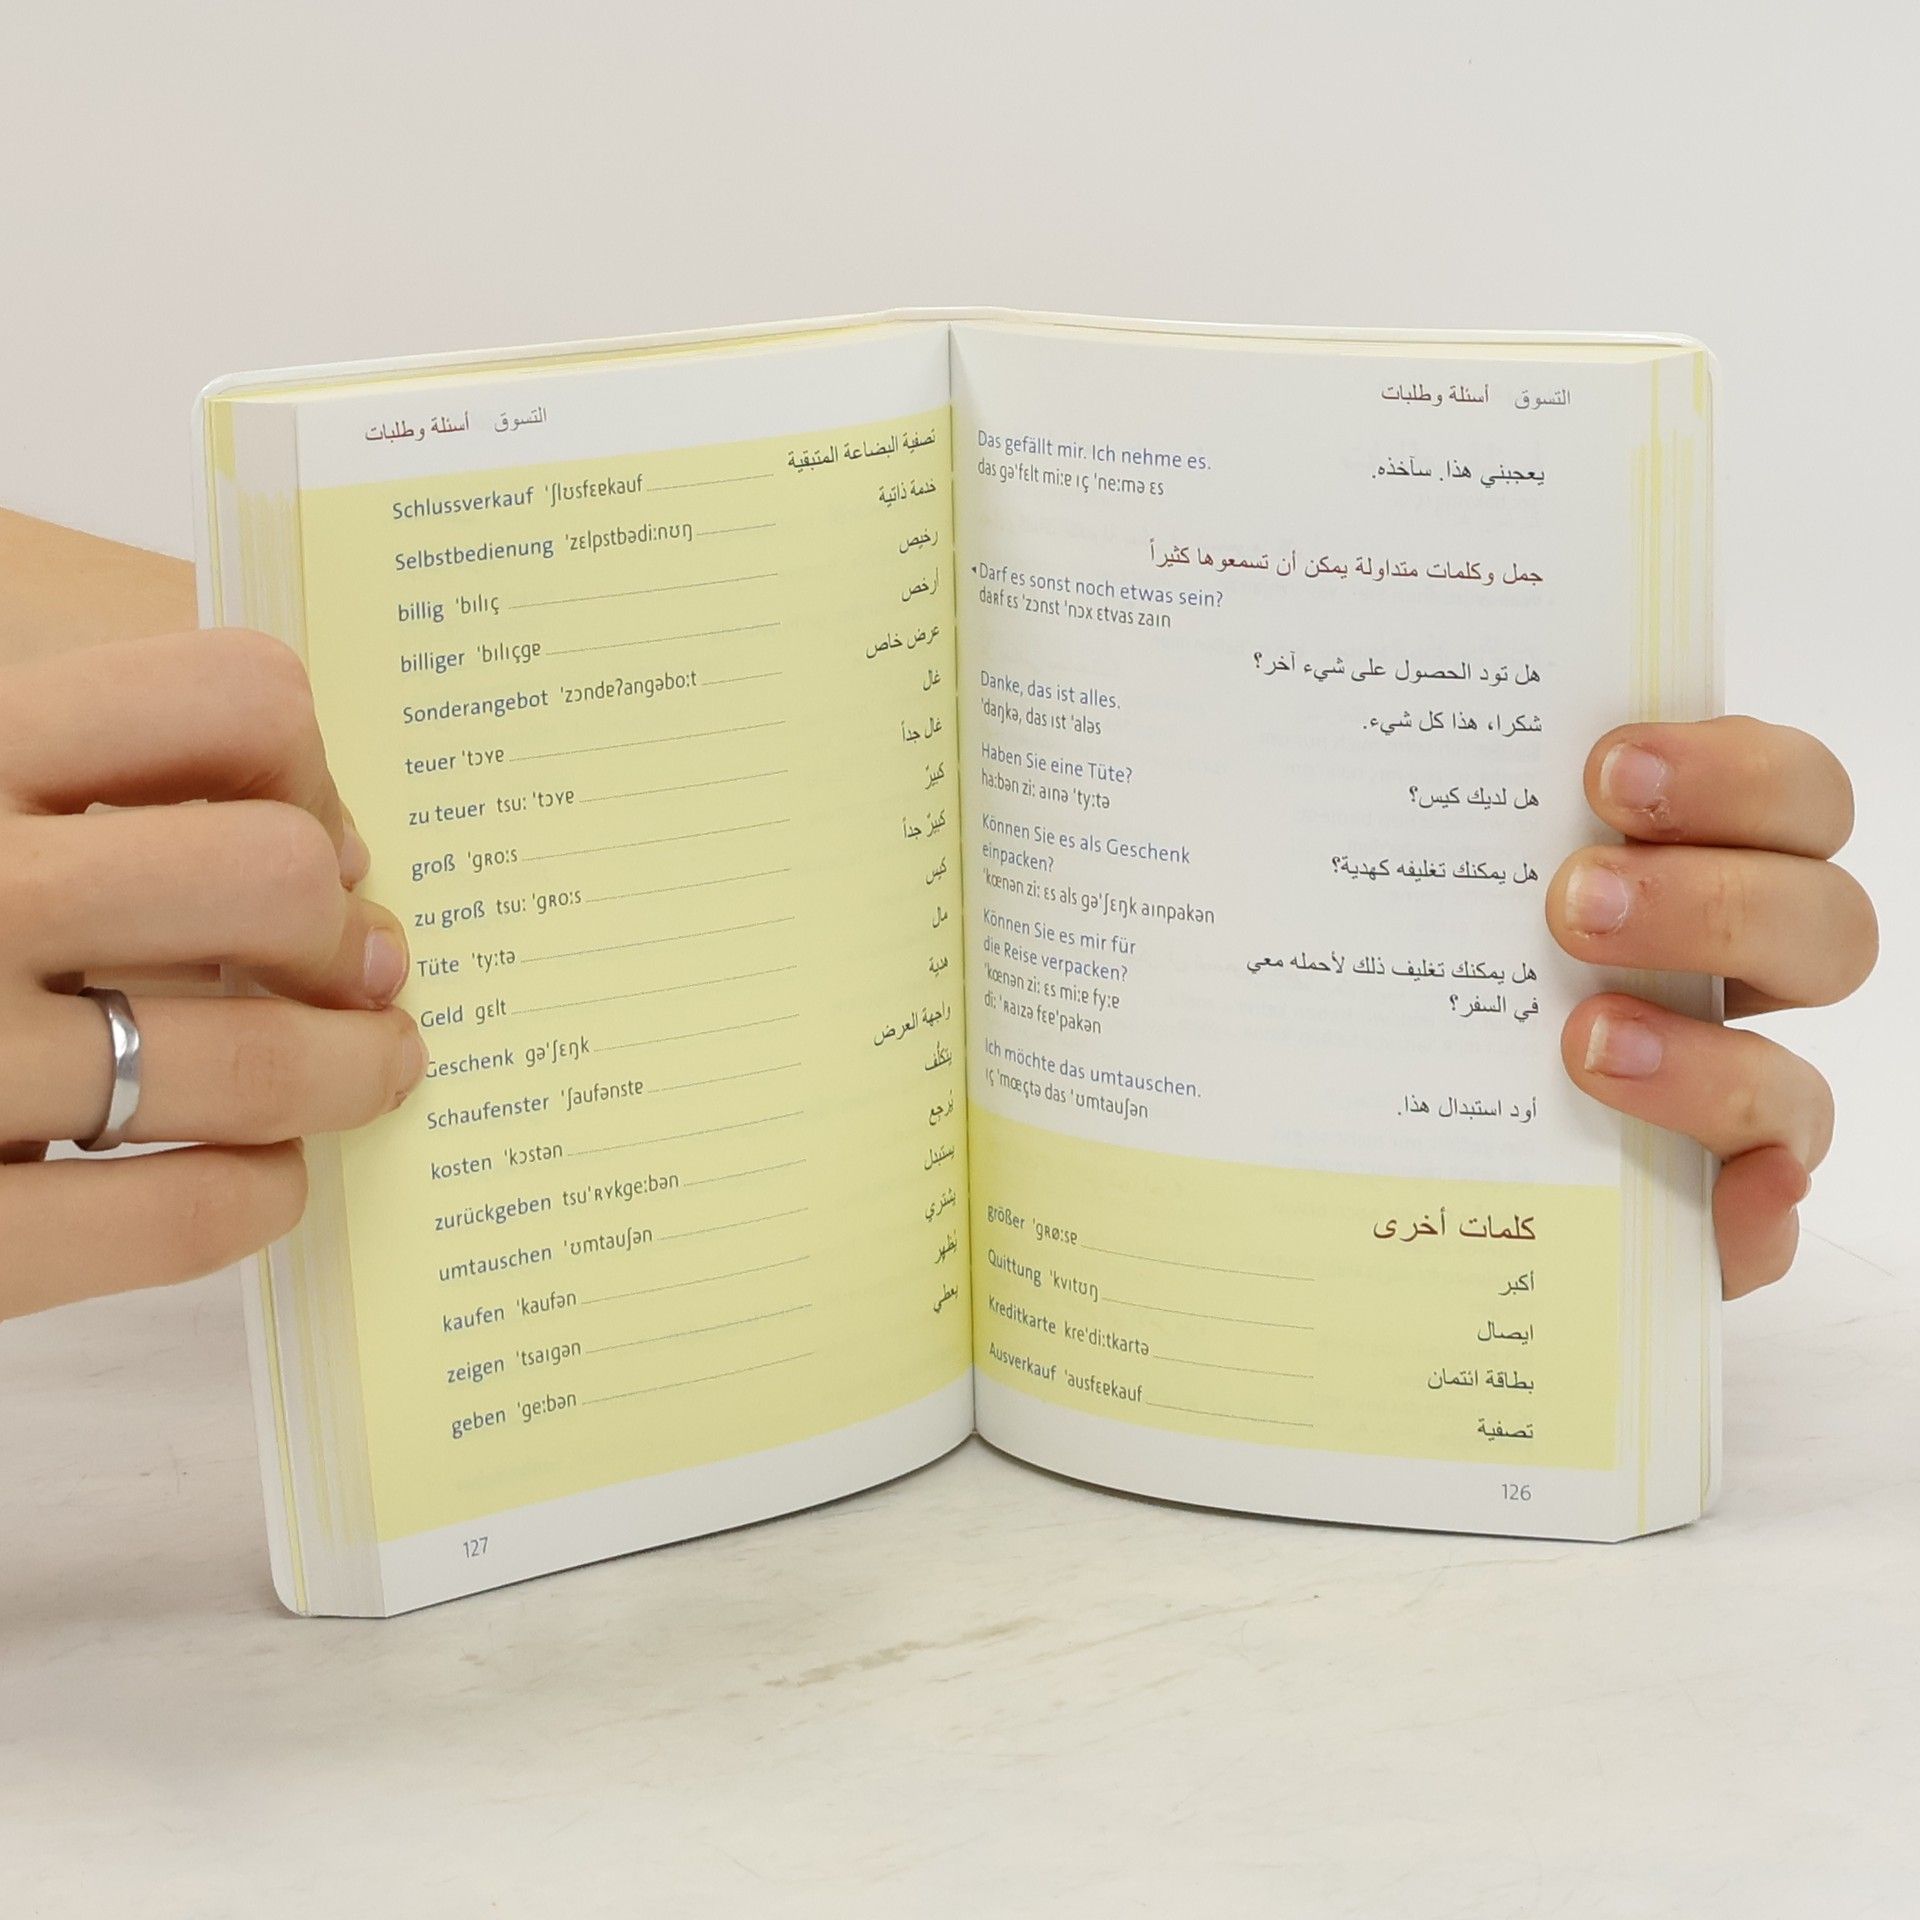 التسوق أسئلة وطلبات
يعجبني هذا. سآخذه.
Das gefällt mir. Ich nehme es.
das gəˈfɛlt miːɐ ıç ˈneːmə ɛs
جمل وكلمات متداولة يمكن أن تسمعوها كثيراً
Darf es sonst noch etwas sein?
daʀf ɛs ˈzɔnst ˈnɔx ɛtvas zaın
هل تود الحصول على شيء آخر؟
شكرا، هذا كل شيء.
Danke, das ist alles.
ˈdaŋkə, das ıst ˈaləs
هل لديك كيس؟
Haben Sie eine Tüte?
haːbən ziː aınə ˈtyːtə
هل يمكنك تغليفه كهدية؟
Können Sie es als Geschenk
einpacken?
ˈkœnən ziː ɛs als gəˈʃɛŋk aınpakən
هل يمكنك تغليف ذلك لأحمله معي
في السفر؟
Können Sie es mir für
die Reise verpacken?
ˈkœnən ziː ɛs miːɐ fyːɐ
diː ˈʀaızə fɛɐˈpakən
أود استبدال هذا.
Ich möchte das umtauschen.
ıç ˈmœçtə das ˈʊmtauʃən
كلمات أخرى
أكبر größer ˈgʀøːsɐ
ايصال Quittung ˈkvıtʊŋ
بطاقة ائتمان Kreditkarte kreˈdiːtkartə
تصفية Ausverkauf ˈausfɛɐkauf
126
التسوق أسئلة وطلبات
تصفية البضاعة المتبقية Schlussverkauf ˈʃlʊsfɛɐkauf
خدمة ذاتية Selbstbedienung ˈzɛlpstbədiːnʊŋ
رخيص billig ˈbılıç
أرخص billiger ˈbılıçgɐ
عرض خاص Sonderangebot ˈzɔndɐʔangəboːt
غال teuer ˈtɔʏɐ
غال جداً zu teuer tsuː ˈtɔʏɐ
كبيرٌ groß ˈgʀoːs
كبيرٌ جداً zu groß tsuː ˈgʀoːs
كيس Tüte ˈtyːtə
مال Geld gɛlt
هدية Geschenk gəˈʃɛŋk
واجهة العرض Schaufenster ˈʃaufənstɐ
يتكلَّف kosten ˈkɔstən
يُرجع zurückgeben tsuˈʀʏkgeːbən
يستبدل umtauschen ˈʊmtauʃən
يشتري kaufen ˈkaufən
يُظهر zeigen ˈtsaıgən
يعطي geben ˈgeːbən
127